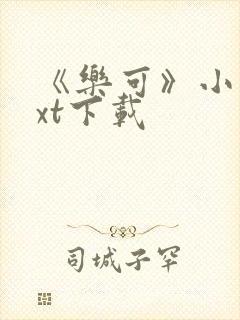 《樂可》小
xt下載
司城子罕